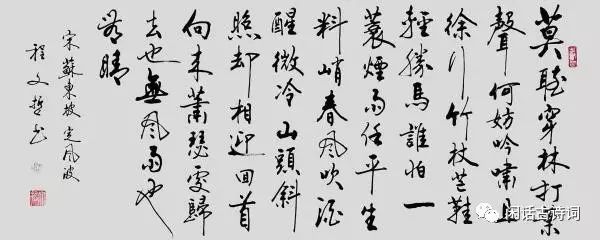 莫聽穿林打葉
聲何妨吟嘯且
徐行竹杖芒鞋
輕勝馬誰怕一
蓑煙雨任平生
料峭春風吹酒
醒微冷山頭斜
照却相迎回首
向来蕭瑟處歸
去也無風雨也
無晴
宋蘇東坡定風波
程文哲书
闲话古诗词